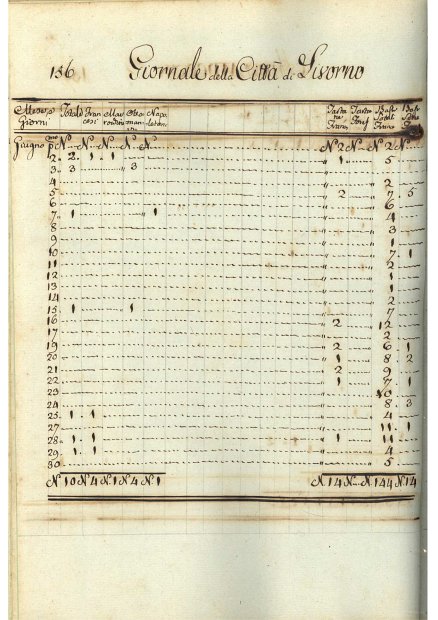 156 Giornale della Città di Livorno
Mese e Totale Fran Mar Otto Napo
Giorni cesi man letani
Giugno pmo N N N N N N 2 N N 2 N
2 2 1 1 1 5
3 3 3
4
5 2 7 5
6 6
7 1 1 4
8 3
9 1
10 7 1
11 2
12 1
13 1
14 2
15 1 1 7
16 2 12
17 2
19 2 6 1
20 1 8 2
21 2 9
22 1 7 1
23 10
24 8 3
25 1 1 4
27 11 1
28 1 1 1 11
29 1 1 4
30 5
N 10 N 4 N 1 N 4 N 1 N 14 N N 144 N 14